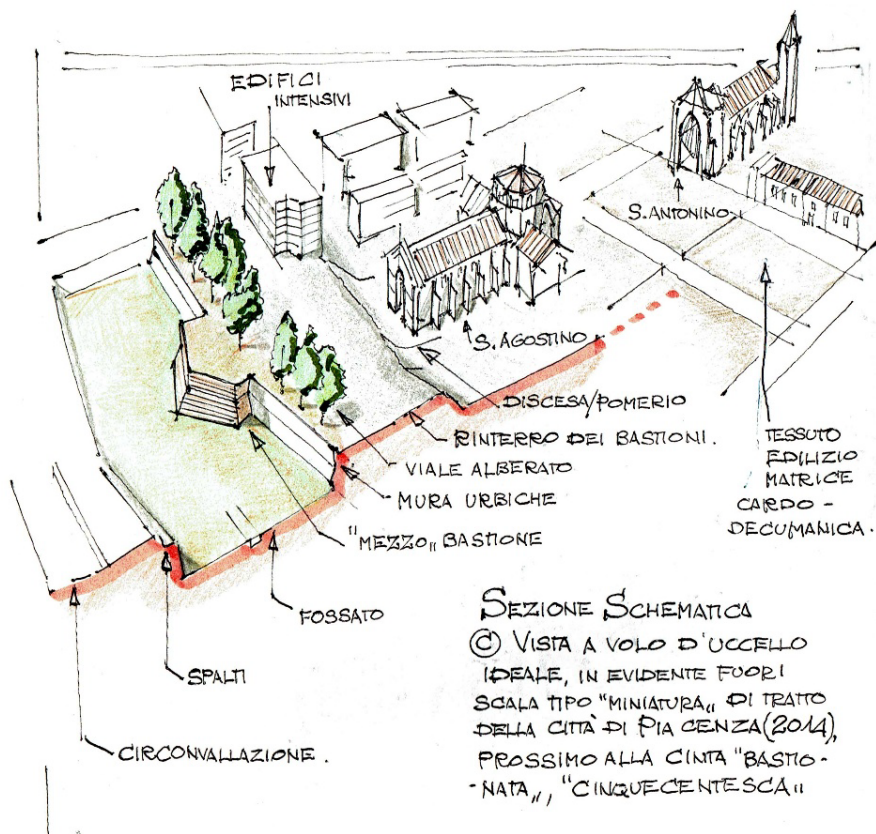 EDIFICI
INTENSIVI
S. ANTONINO
S. AGOSTINO
DISCESA/POMERIO
RINTERRO DEI BASTIONI.
VIALE ALBERATO
MURA URBICHE
"MEZZO„ BASTIONE
FOSSATO
SPALTI
CIRCONVALLAZIONE.
TESSUTO
EDILIZIO
MATRICE
CARDO -
DECUMANICA.
SEZIONE SCHEMATICA
© VISTA A VOLO D'UCCELLO
IDEALE, IN EVIDENTE FUORI
SCALA TIPO "MINIATURA„ DI TRATTO
DELLA CITTÀ DI PIACENZA (2014),
PROSSIMO ALLA CINTA "BASTIO-
-NATA„, "CINQUECENTESCA„